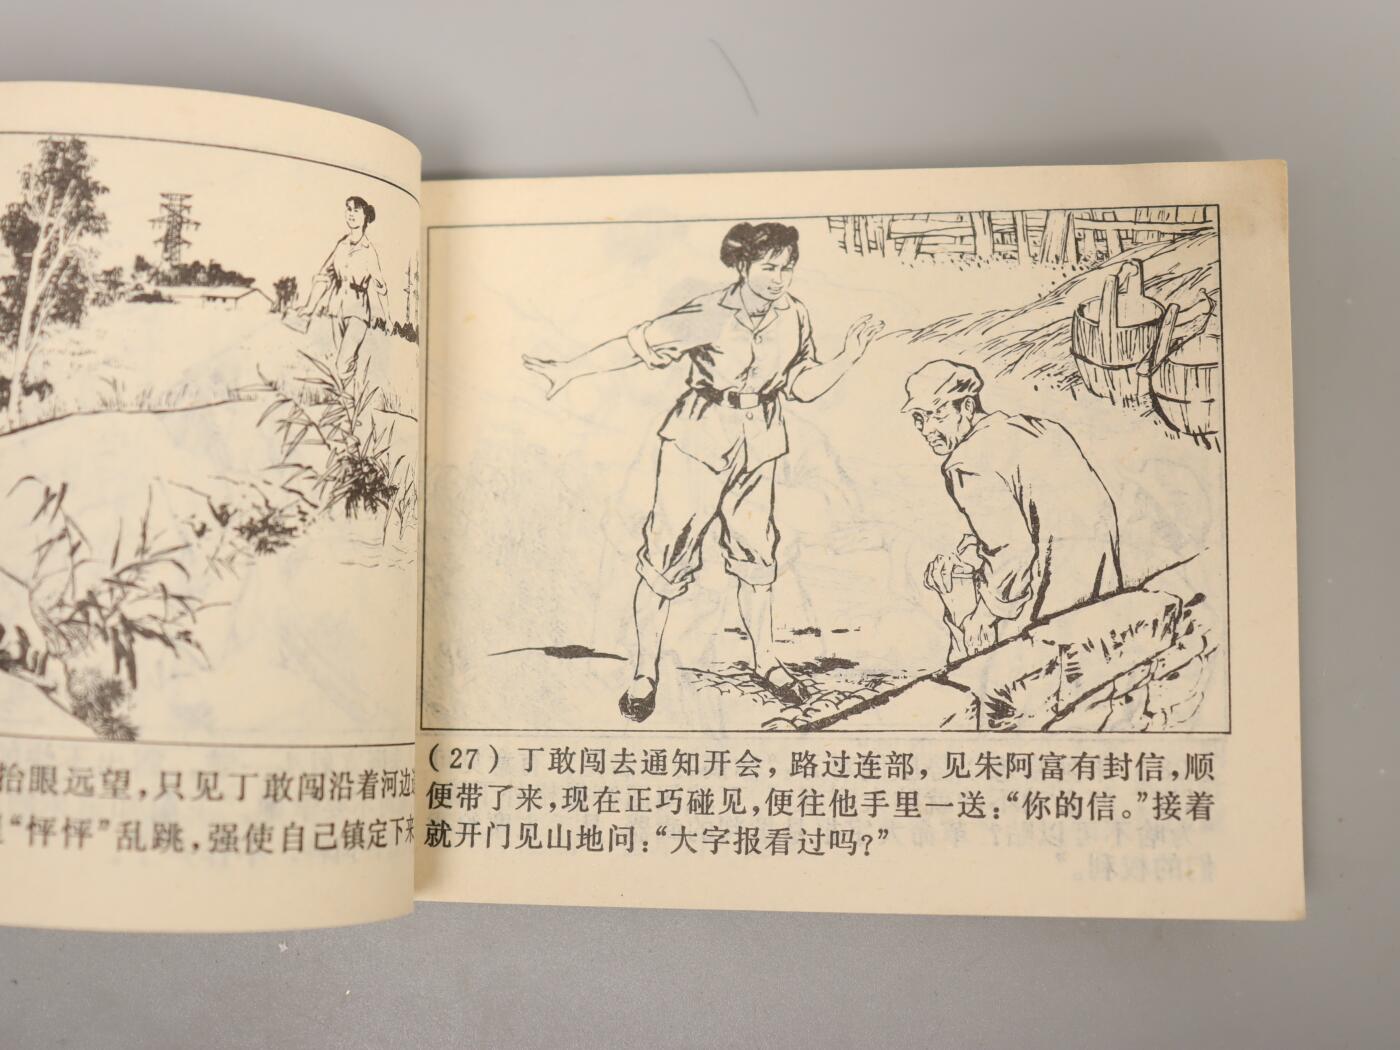 抬眼远望，只见丁敢闯沿着河边
“怦怦”乱跳，强使自己镇定下来
(27) 丁敢闯去通知开会，路过连部，见朱阿富有封信，顺
便带了来，现在正巧碰见，便往他手里一送：“你的信。”接着
就开门见山地问：“大字报看过吗？”